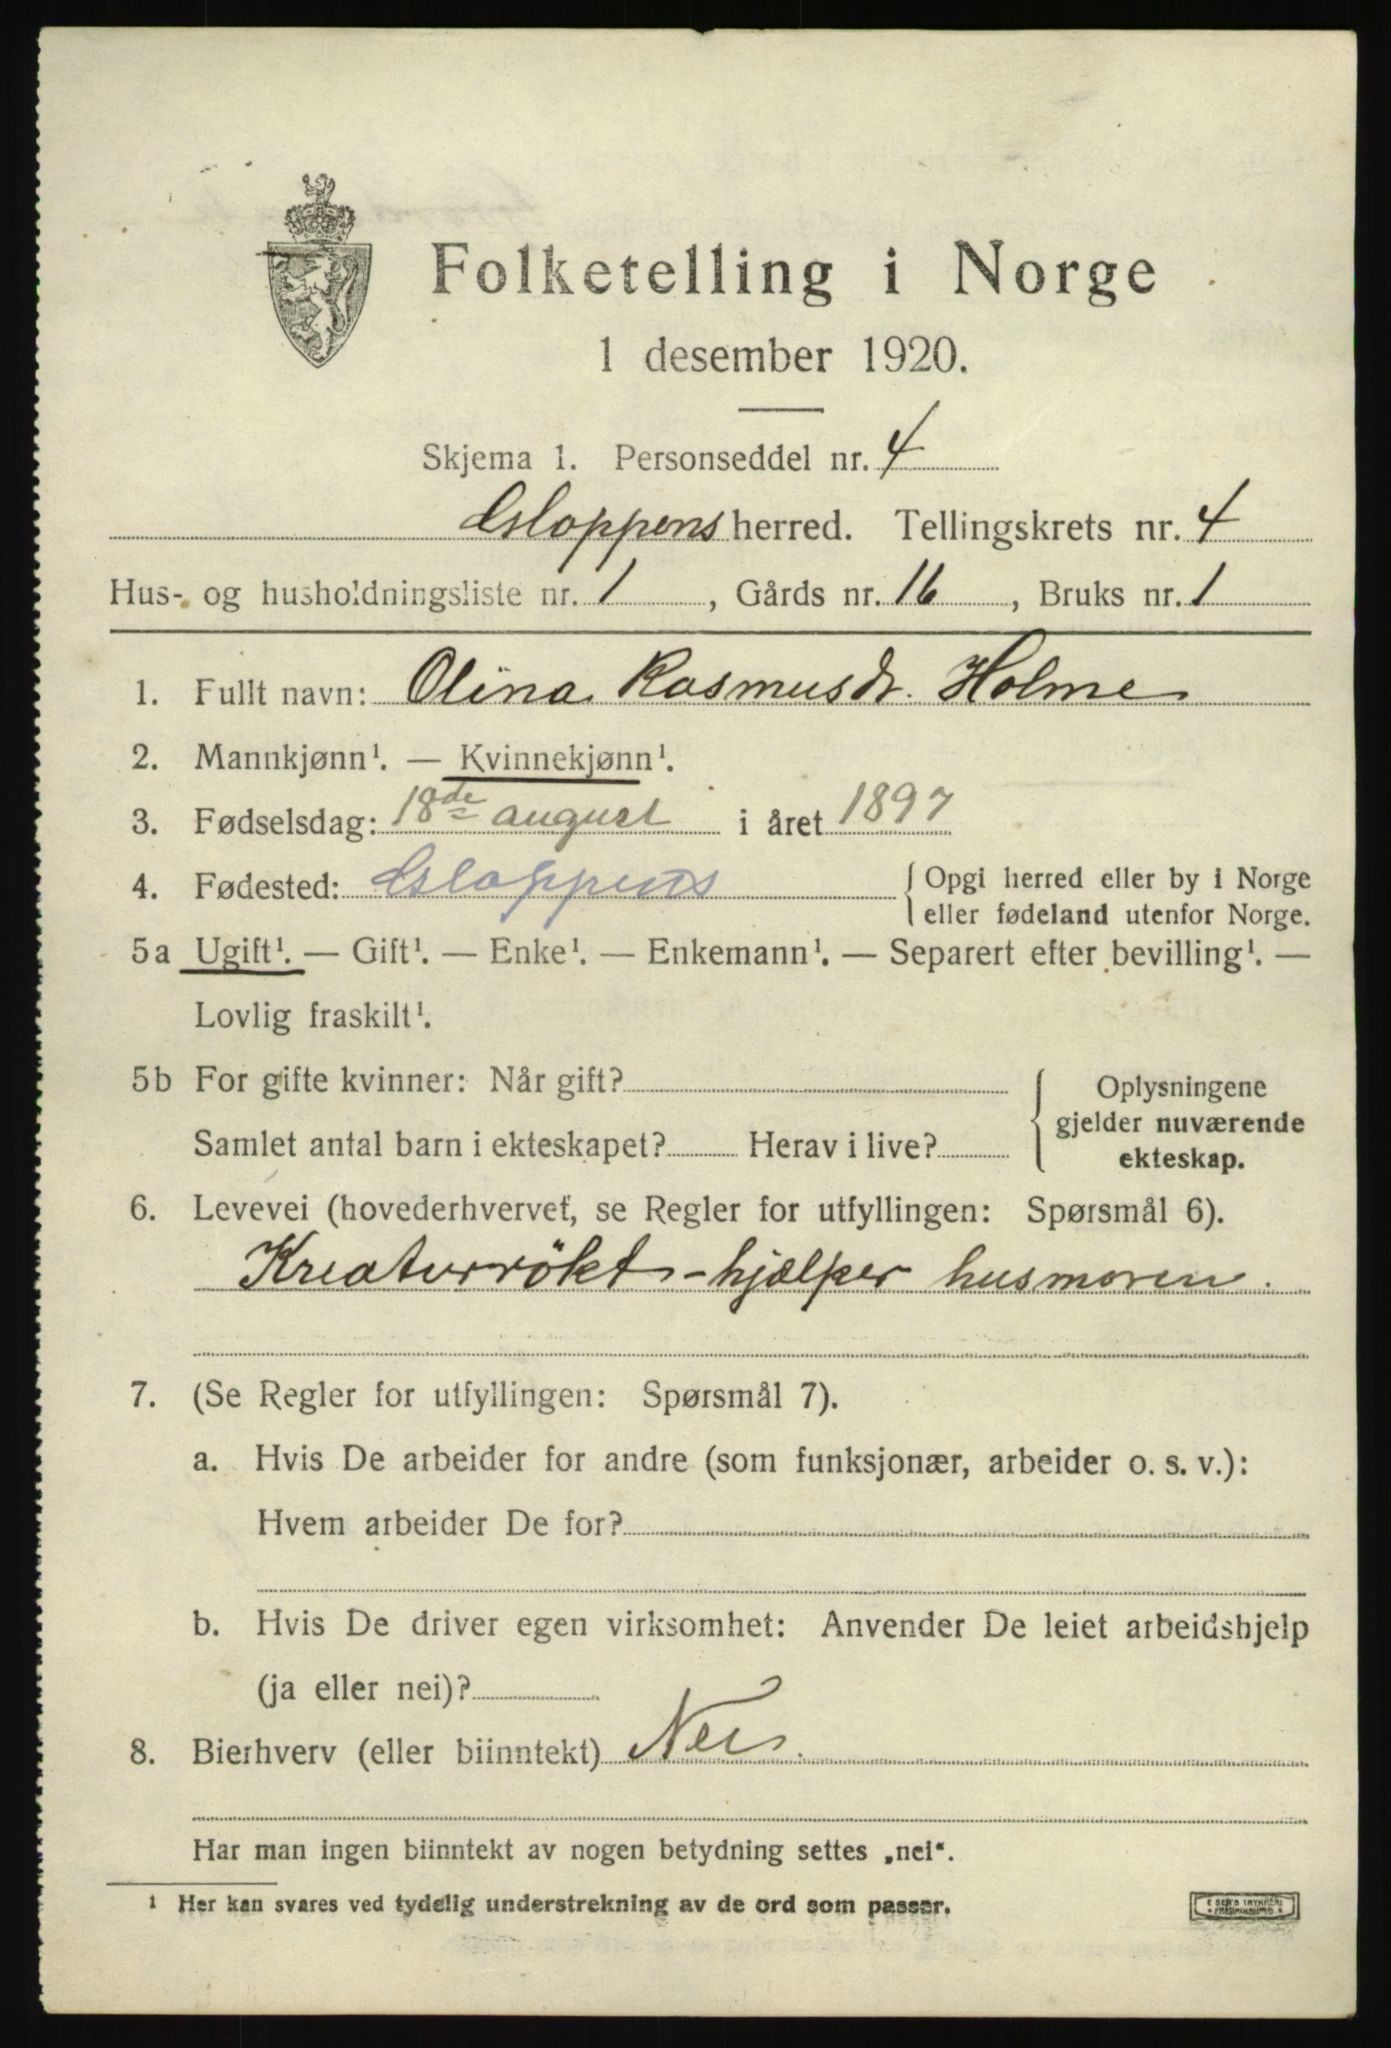 Folketelling i Norge
1 desember 1920.
Skjema 1. Personseddel nr. 4
Gloppens herred. Tellingskrets nr. 4
Hus- og husholdningsliste nr. 1, Gårds nr. 16, Bruks nr. 1
1. Fullt navn: Olina Rasmusdr. Holme
2. Mannkjønn¹. — Kvinnekjønn¹.
3. Fødselsdag: 18de august i året 1897
4. Fødested: Gloppens { Opgi herred eller by i Norge
eller fødeland utenfor Norge.
5a Ugift¹. — Gift¹. — Enke¹. — Enkemann¹. — Separert efter bevilling¹. —
Lovlig fraskilt¹.
5b For gifte kvinner: Når gift?
Samlet antal barn i ekteskapet? Herav i live?
{ Oplysningene
gjelder nuværende
ekteskap.
6. Levevei (hovederhvervet, se Regler for utfyllingen: Spørsmål 6).
Kreaturrökt - hjælper husmoren.
7. (Se Regler for utfyllingen: Spørsmål 7).
a. Hvis De arbeider for andre (som funksjonær, arbeider o. s. v.):
Hvem arbeider De for?
b. Hvis De driver egen virksomhet: Anvender De leiet arbeidshjelp
(ja eller nei)?
8. Bierhverv (eller biinntekt) Nei.
Har man ingen biinntekt av nogen betydning settes „nei“.
¹ Her kan svares ved tydelig understrekning av de ord som passer.